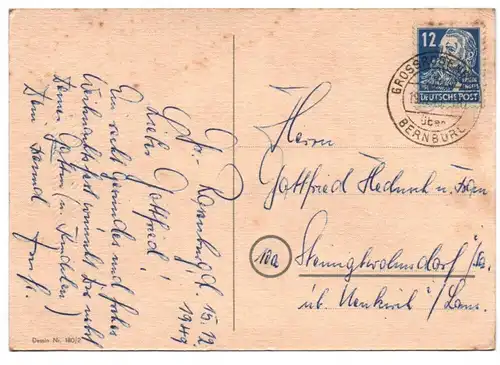 Gr. Rosenburg, 15.12.
1949.
Lieber Gottfried!
Ein recht gesundes und frohes
Weihnachtsfest wünscht Dir nebst
Deiner Gattin (u. Fräulein)
Dein Freund
12
DEUTSCHE POST
GROSS
über
BERNBURG
Herrn
Gottfried Hednick u. Frau
10a
Steinigtwolmsdorf/Sa.
üb. Neukirch/Laus.
Dessin Nr. 180/2